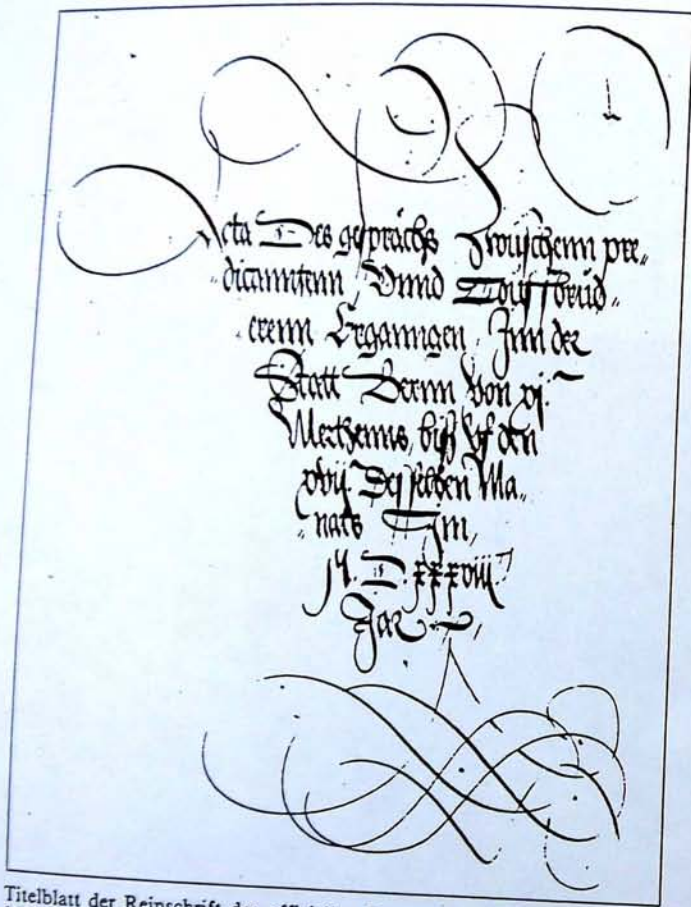 Acta Des gesprächs Zwüschenn pre„
dicanntenn Vnnd Töüffbrüd„
erenn Erganngen, Inn der
Statt Bernn Von xj.
Mertzenns, biß Vf den
xvij. Desselben Ma„
nats Im,
M. D. xxxviij
Jar
Titelblatt der Reinschrift